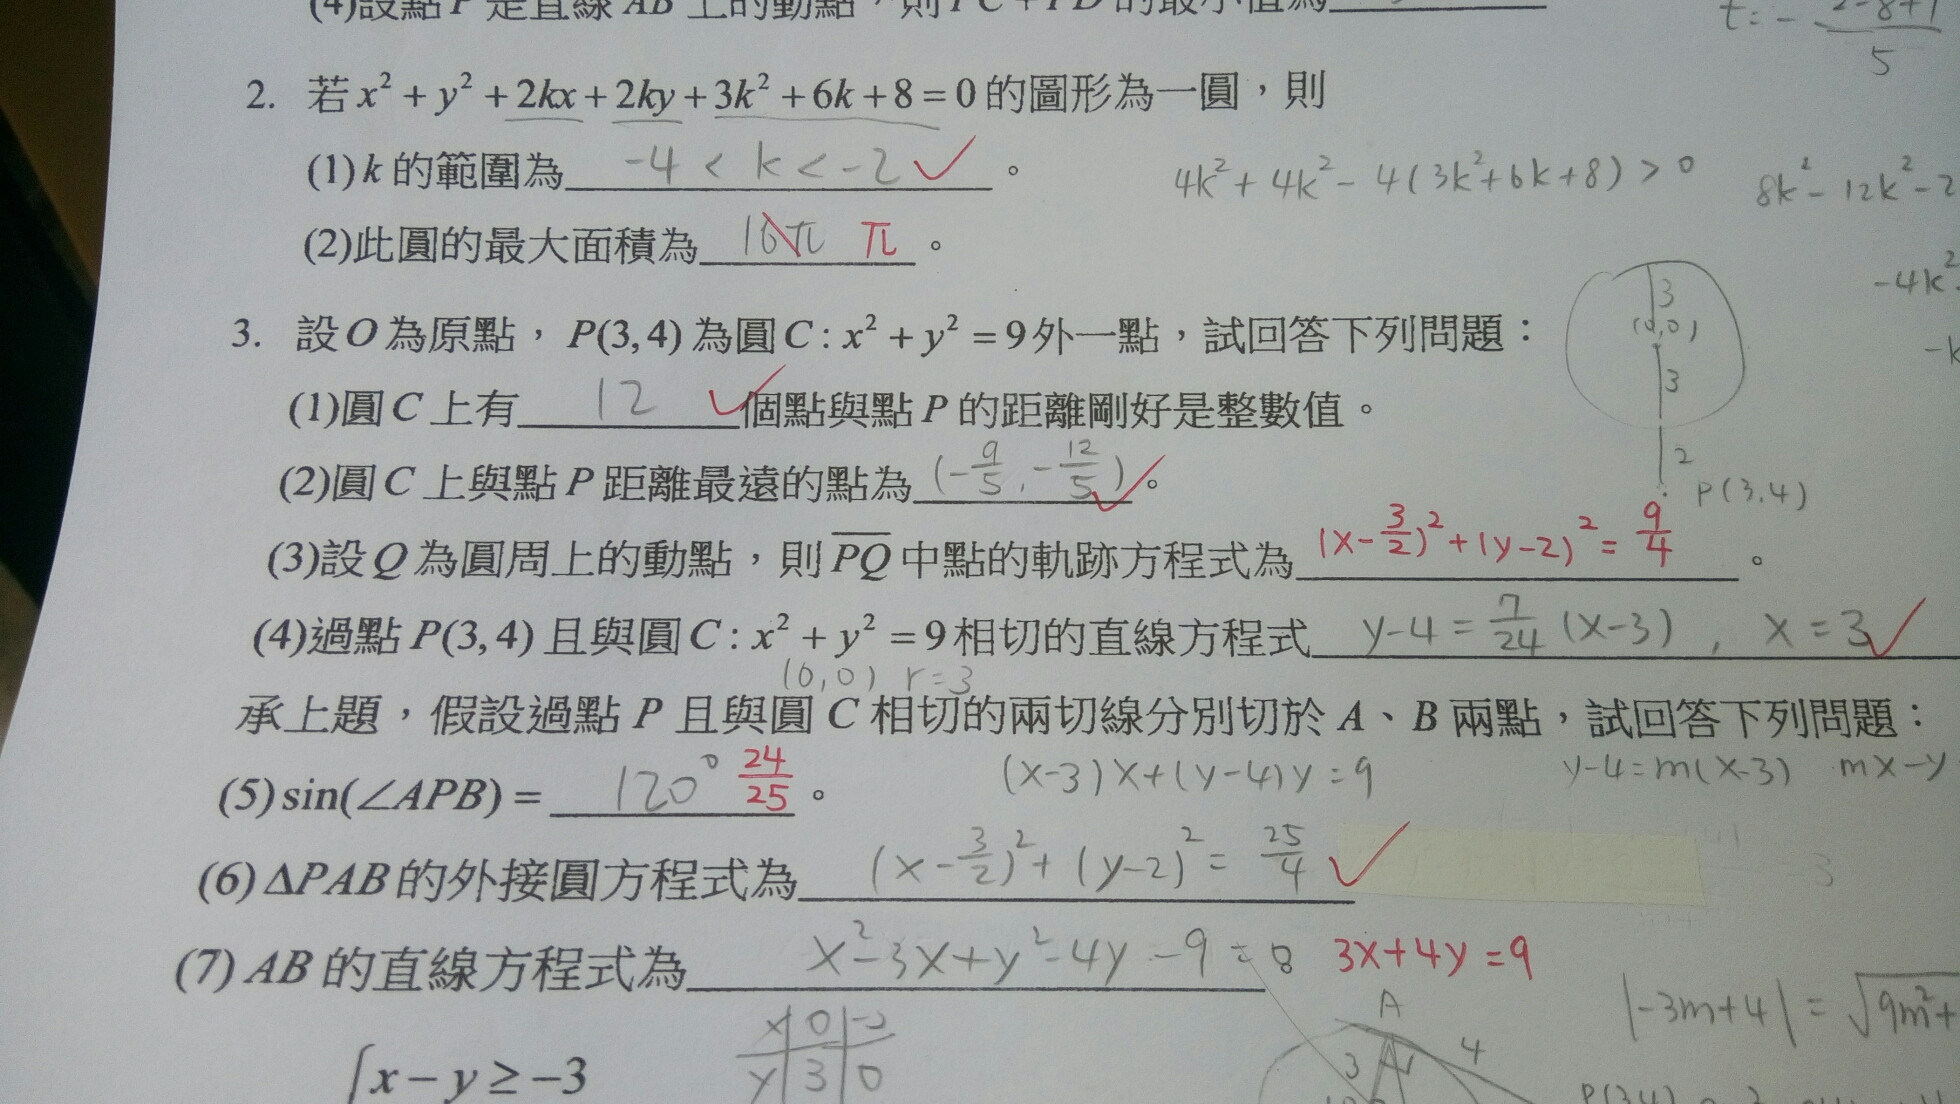 (4)設點P是直線AB上的動點，則PC+PD的最小值為
t=-(2-8+1)/5
2. 若x²+y²+2kx+2ky+3k²+6k+8=0的圖形為一圓，則
(1)k的範圍為 -4<k<-2 ✓。
4k²+4k²-4(3k²+6k+8)>0 8k²-12k²-2
(2)此圓的最大面積為 10π π。
-4k²
3. 設O為原點，P(3,4)為圓C:x²+y²=9外一點，試回答下列問題：
3
(0,0)
3
-k
(1)圓C上有 12 ✓個點與點P的距離剛好是整數值。
(2)圓C上與點P距離最遠的點為 (-9/5, -12/5) ✓。
2
P(3.4)
(3)設Q為圓周上的動點，則PQ中點的軌跡方程式為 (x-3/2)²+(y-2)²=9/4。
(4)過點P(3,4)且與圓C:x²+y²=9相切的直線方程式 y-4=7/24(x-3), x=3 ✓
(0,0) r=3
承上題，假設過點P且與圓C相切的兩切線分別切於A、B兩點，試回答下列問題：
(5)sin(∠APB)= 120° 24/25。
(x-3)x+(y-4)y=9 y-4=m(x-3) mx-y
(6)ΔPAB的外接圓方程式為 (x-3/2)²+(y-2)²=25/4 ✓
(7)AB的直線方程式為 x²-3x+y²-4y-9=0 3x+4y=9
|-3m+4|=√9m²+
x 0 -3
y 3 0
{x-y≥-3
A
3 4
P(3,4)